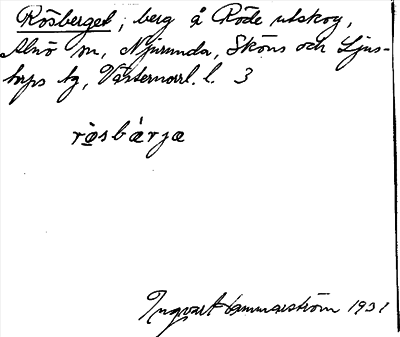 Rösberget, berg å Röde utskog,
Alnö sn, Njurunda, Sköns och Ljus-
torps tg, Västernorrl. l. 3
rösbärja
Ingvar Hammarström 1931